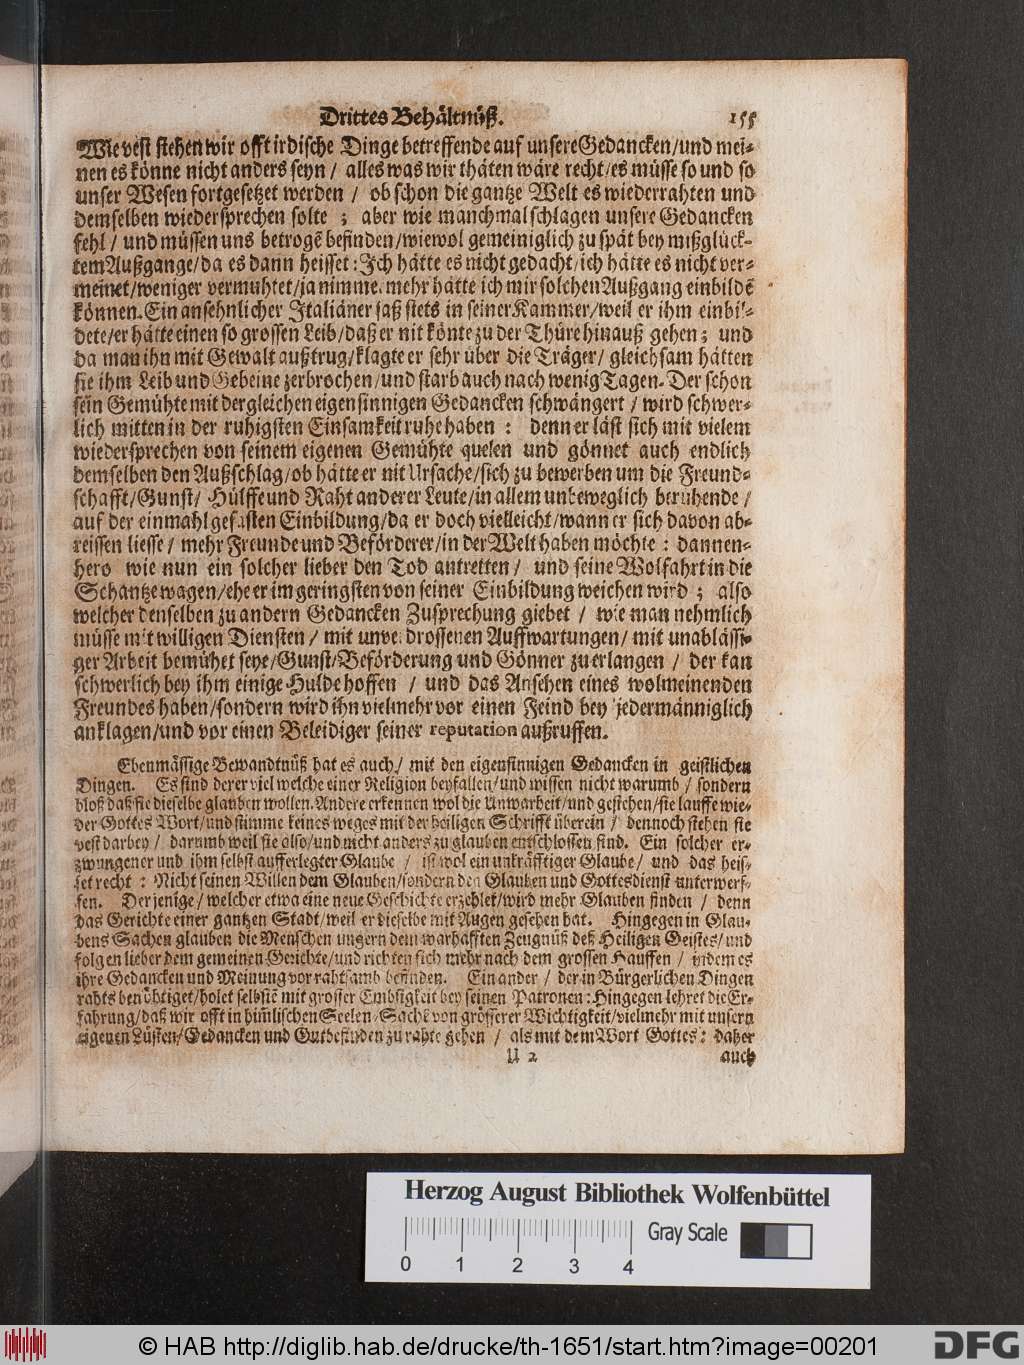 Drittes Behältnüß. 155
Wie vest stehen wir offt irdische Dinge betreffende auf unsere Gedancken/und mei-
nen es könne nicht anders seyn / alles was wir thäten wäre recht/es müsse so und so
unser Wesen fortgesetzet werden / ob schon die gantze Welt es wiederrahten und
demselben wiedersprechen solte ; aber wie manchmal schlagen unsere Gedancken
fehl / und müssen uns betrogē befinden/wiewol gemeiniglich zu spät bey mißglück-
tem Außgange/da es dann heisset: Ich hätte es nicht gedacht/ich hätte es nicht ver-
meinet/weniger vermuhtet/ja nimmermehr hätte ich mir solchen Außgang einbildē
können. Ein ansehnlicher Italiäner saß stets in seiner Kammer/weil er ihm einbil-
dete/er hätte einen so grossen Leib/daß er nit könte zu der Thüre hinauß gehen; und
da man ihn mit Gewalt außtrug/klagte er sehr über die Träger/ gleichsam hätten
sie ihm Leib und Gebeine zerbrochen/und starb auch nach wenig Tagen. Der schon
sein Gemühte mit dergleichen eigensinnigen Gedancken schwängert / wird schwer-
lich mitten in der ruhigsten Einsamkeit ruhe haben : denn er läst sich mit vielem
wiedersprechen von seinem eigenen Gemühte quelen und gönnet auch endlich
demselben den Außschlag/ob hätte er nit Ursache/sich zu bewerben um die Freund-
schafft/Gunst/ Hülffe und Raht anderer Leute/in allem unbeweglich beruhende /
auf der einmahl gefasten Einbildung/da er doch vielleicht/wann er sich davon ab-
reissen liesse / mehr Freunde und Beförderer/in der Welt haben möchte : dannen-
hero wie nun ein solcher lieber den Tod antretten / und seine Wolfahrt in die
Schantze wagen/ehe er im geringsten von seiner Einbildung weichen wird ; also
welcher denselben zu andern Gedancken Zusprechung giebet / wie man nehmlich
müsse mit willigen Diensten / mit unverdrossenen Auffwartungen/ mit unablässi-
ger Arbeit bemühet seye/Gunst/Beförderung und Gönner zu erlangen / der kan
schwerlich bey ihm einige Hulde hoffen / und das Ansehen eines wolmeinenden
Freundes haben/sondern wird ihn vielmehr vor einen Feind bey jedermänniglich
anklagen/und vor einen Beleidiger seiner reputation außruffen.
Ebenmässige Bewandtnüß hat es auch / mit den eigensinnigen Gedancken in geistlichen
Dingen. Es sind derer viel welche einer Religion beyfallen/und wissen nicht warumb / sondern
bloß daß sie dieselbe glauben wollen. Andere erkennen wol die Unwarheit/und gestehen/sie lauffe wie-
der Gottes Wort/und stimme keines weges mit der heiligen Schrifft überein / dennoch stehen sie
vest darbey / darumb weil sie also/und nicht anders zu glauben entschlossen sind. Ein solcher er-
zwungener und ihm selbst aufferlegter Glaube / ist wol ein unkräfftiger Glaube/ und das heis-
set recht : Nicht seinen Willen dem Glauben/sondern den Glauben und Gottesdienst unterwerf-
fen. Derjenige/ welcher etwa eine neue Geschichte erzehlet/wird mehr Glauben finden / denn
das Gerichte einer gantzen Stadt/weil er dieselbe mit Augen gesehen hat. Hingegen in Glau-
bens Sachen glauben die Menschen ungern dem warhafften Zeugnüß deß Heiligen Geistes/und
folgen lieber dem gemeinen Gerichte/und richten sich mehr nach dem grossen Hauffen / indem es
ihre Gedancken und Meinung vor rahtsamb befinden. Ein ander / der in Bürgerlichen Dingen
rahts benöhtiget/holet selbsten mit grosser Embsigkeit bey seinen Patronen: Hingegen lehret die Er-
fahrung/daß wir offt in him̄lischen Seelen-Sachē von grösserer Wichtigkeit/vielmehr mit unsern
eigenen Lüsten/Gedancken und Gutbefinden zu rahte gehen / als mit dem Wort Gottes: daher
U 2 auch
Herzog August Bibliothek Wolfenbüttel
Gray Scale
0 1 2 3 4
© HAB http://diglib.hab.de/drucke/th-1651/start.htm?image=00201
DFG